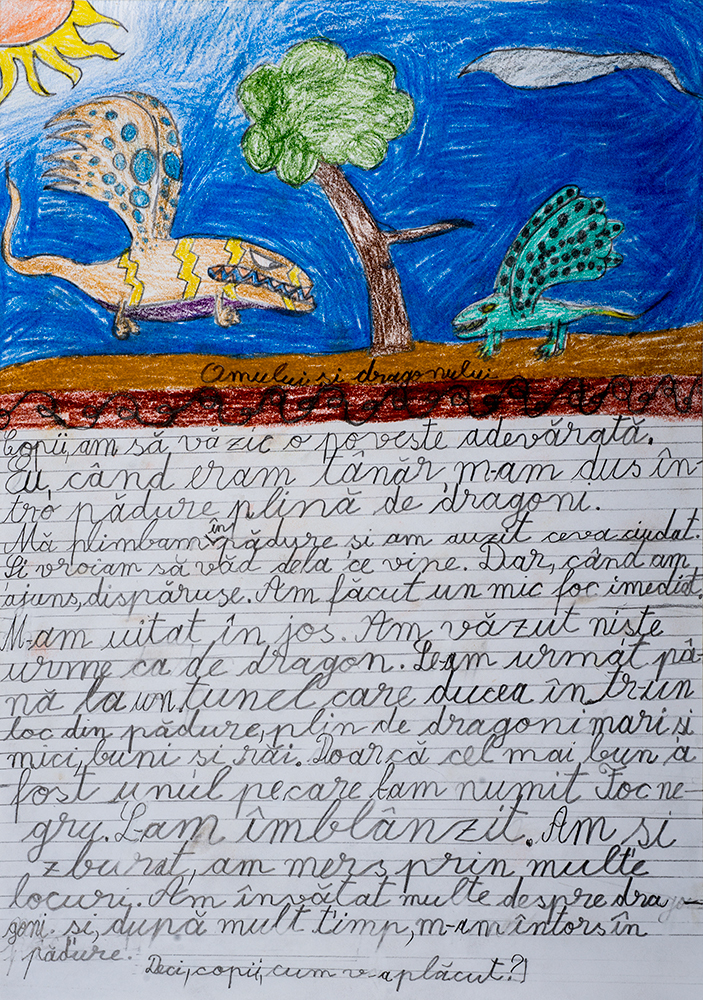 Omului și dragonului
Copii, am să vă zic o poveste adevărată.
Eu, când eram tânăr, m-am dus în-
tro pădure plină de dragoni.
Mă plimbam în pădure si am auzit ceva ciudat.
Si vroiam să văd dela ce vine. Dar, când am
ajuns, dispăruse. Am făcut un mic foc imediat.
M-am uitat în jos. Am văzut niste
urme ca de dragon. Le-am urmat pâ-
nă la un tunel care ducea în tr-un
loc din pădure, plin de dragoni mari si
mici, buni si răi. Doar că cel mai bun a
fost unul pe care l-am numit Foc ne-
gru. L-am îmblânzit. Am si
zburat, am mers prin multe
locuri. Am învătat multe despre drago-
goni si, după mult timp, m-am întors în
pădure.
Deci, copii, cum v-a plăcut?